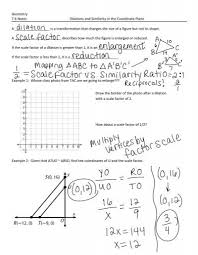 Geometry
7.6 Notes Dilations and Similarity in the Coordinate Plane
A dilation is a transformation that changes the size of a figure but not its shape.
A scale factor describes how much the figure is enlarged or reduced.
If the scale factor of a dilation is greater than 1, it is an enlargement
If the scale factor is less than 1, it is a reduction
Mapping △ABC to △A'B'C'
1/2 = Scale factor VS Similarity Ratio = 2:1
Reciprocals 2/1
Example 1: Whose class photo from FAC are we going to enlarge????
Draw the border of the photo after a dilation
with a scale factor of 3.
How about a scale factor of 1/2?
multiply
vertices by
factor scale
Example 2: Given that
find the coordinates of U and the scale factor.
Y(0, 16)
R(−12, 0)
(0,12)
YO/UO = RO/TO
16/x = 12/9
12x = 144
x = 12
(0,16)
(0,12)
3/4